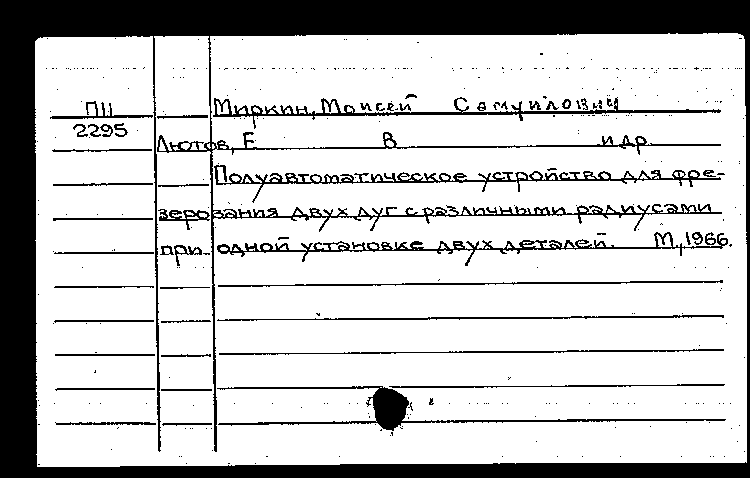 П11 Миркин, Моисей Самуилович
2295 Лютов, Е В и др.
Полуавтоматическое устройство для фре-
зерования двух дуг с различными радиусами
при одной установке двух деталей. М., 1966.